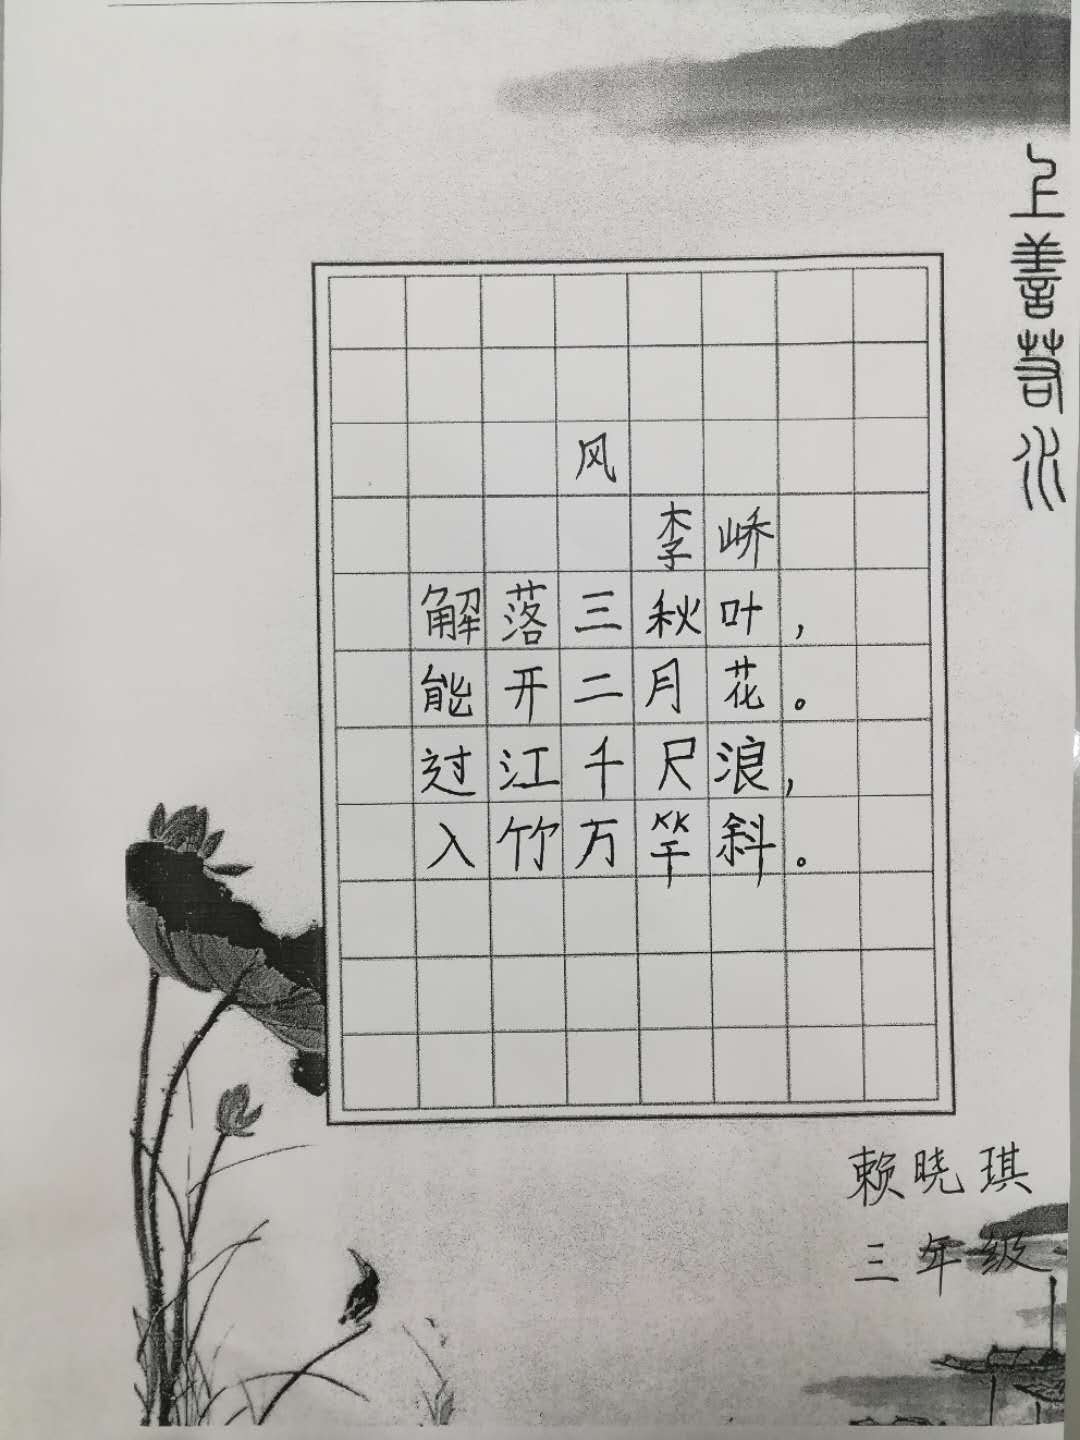 上善若水
风
李峤
解落三秋叶，
能开二月花。
过江千尺浪，
入竹万竿斜。
赖晓琪
三年级